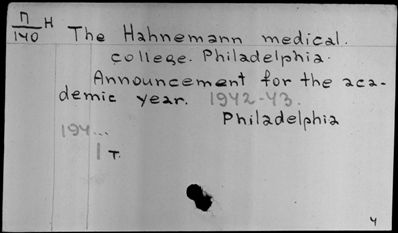 П H
140
The Hahnemann medical.
college. Philadelphia.
Announcement for the aca-
demic year. 1942-43.
Philadelphia
194...
1 T.
4